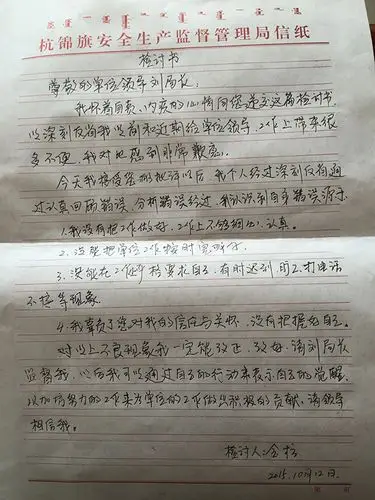 杭锦旗安全生产监督管理局信纸
检讨书
尊敬的单位领导刘局长:
我怀着自责、内疚的心情向您递交这篇检讨书,
以深刻反省我以前和近期给单位领导,工作上带来很
多不便,我对此感到非常歉意。
今天我接受您的批评以后,我个人经过深刻反省通
过认真回顾错误、分析错误经过,我认识到自身错误源于
1.我没有把工作做好,工作上不够细心、认真。
2.没能把单位工作按时完成好。
3.没能在工作中严格要求自己,有时迟到,旷工,打电话
不接等现象。
4.我辜负了您对我的信任与关怀,没有把握好自己。
对以上不良现象我一定能改正,改好,请刘局长
监督我,以后我可以通过自己的行动来表示自己的觉醒,
以加倍努力的工作来为单位的工作做出积极的贡献,请领导
相信我。
检讨人:
2015.10月12日.